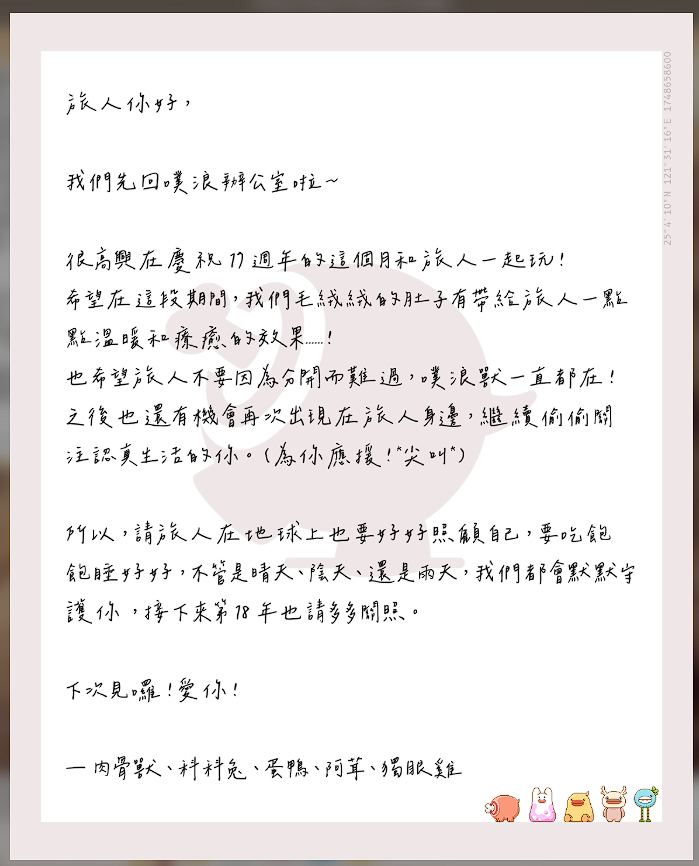 旅人你好，
我們先回噗浪辦公室啦～
很高興在慶祝17週年的這個月和旅人一起玩！
希望在這段期間，我們毛絨絨的肚子有帶給旅人一點
點溫暖和療癒的效果……！
也希望旅人不要因為分開而難過，噗浪獸一直都在！
之後也還有機會再次出現在旅人身邊，繼續偷偷關
注認真生活的你。（為你應援！*尖叫*）
所以，請旅人在地球上也要好好照顧自己，要吃飽
飽睡好好，不管是晴天、陰天、還是雨天，我們都會默默守
護你，接下來第18年也請多多關照。
下次見囉！愛你！
—肉骨獸、科科兔、蛋鴨、阿茸、獨眼雞
25°4'10"N 121°31'16"E 1748658600